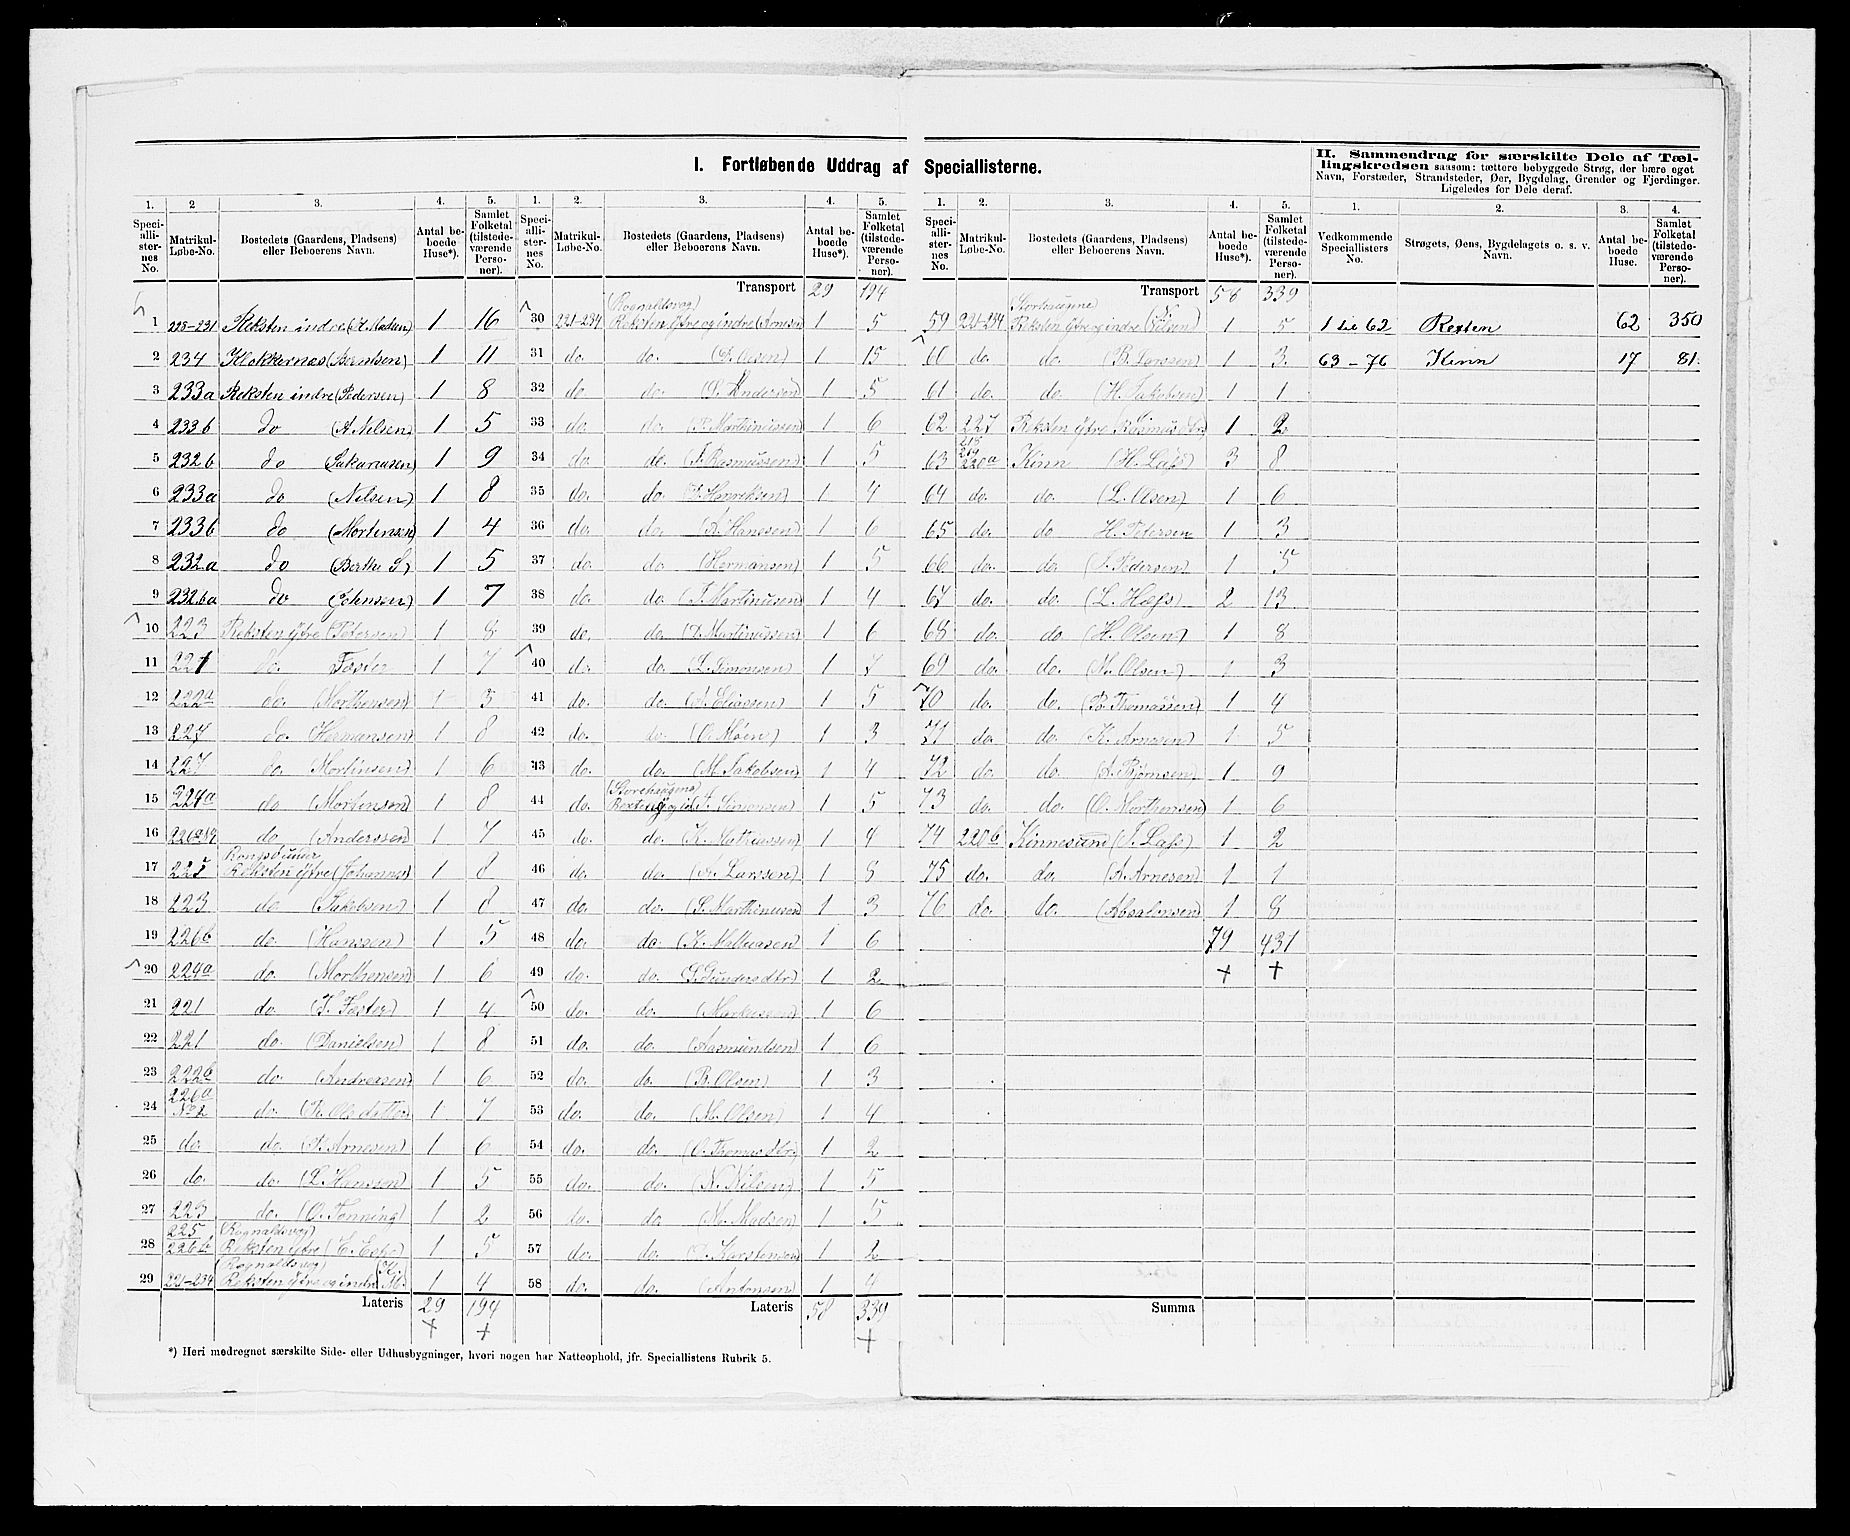 I. Fortløbende Uddrag af Speciallisterne.
II. Sammendrag for særskilte Dele af Tæl-
lingskredsen saasom: tættere bebyggede Strøg, der bære eget
Navn, Forstæder, Strandsteder, Øer, Bygdelag, Grender og Fjerdinger.
Ligeledes for Dele deraf.
1. Speciallisternes No. 2 Matrikul-Løbe-No. 3. Bostedets (Gaardens, Pladsens) eller Beboerens Navn. 4. Antal beboede Huse*). 5. Samlet Folketal (tilstedeværende Personer).
1 228-231 Reksten indre (A. Madsen) 1 16
2 234 Klokkernas (Berntsen) 1 11
3 233a Reksten indre (Pedersen) 1 8
4 233b do (A. Nilsen) 1 5
5 232b do (Sakariasen) 1 9
6 233a do (Nilsen) 1 8
7 233b do (Mortensen) 1 4
8 232a do (Berthe S.) 1 5
9 232ba do (Johnsen) 1 7
10 223 Reksten ytre (Petersen) 1 8
11 221 do. Faster 1 7
12 222a do. (Morthensen) 1 3
13 227 do. (Hermansen) 1 8
14 227 do. Mortinsen) 1 6
15 224a do (Mortensen) 1 8
16 do (Anderssen 1 7
17 225 Reksten ytre (Johannes) 1 8
18 223 do (Jakobsen) 1 8
19 226b do. (Hanssen) 1 5
20 224a do. (Morthensen) 1 6
21 221 do. (T. Faster) 1 4
22 221 do. (Danielsen) 1 8
23 222b do. (Andreasen) 1 6
24 226a No 2 do. 1 7
25 do. do. (P. Arnesen) 1 6
26 do. do. (L. Hanssen) 1 5
27 223 do. (O. Tenning) 1 2
28 225 226b (Rognaldsvog) Reksten ytre 1 5
29 221-234 (Rognaldsvog) Reksten ytre og indre 1 4
Lateris 29 194
+ +
1. Speciallisternes No. 2. Matrikul-Løbe-No. 3. Bostedets (Gaardens, Pladsens) eller Beboerens Navn. 4. Antal beboede Huse*). 5. Samlet Folketal (tilstedeværende Personer).
Transport 29 194
30 221-234 (Rognaldsvog) Reksten ytre og indre (Arnesen 1 5
31 do. do. (D. Olsen) 1 15
32 do do. (S. Andersen) 1 5
33 do. do. (P. Marthiniusen) 1 6
34 do. do. (J. Rasmussen) 1 5
35 do. do. (I. Henriksen) 1 4
36 do. do. (A. Hanssen) 1 6
37 do. do. (Hermansen) 1 5
38 do. do. (J. Martinusen) 1 4
39 do. do. (D. Martinussen) 1 6
40 do. do. (L. Simonsen) 1 7
41 do. do. (A. Eliassen) 1 5
42 do. do. (O. Moen) 1 3
43 do. do. (M. Jakobsen) 1 4
44 do. (Storehaugene) (J. Simonsen) 1 5
45 do. do. (K. Mathiassen) 1 4
46 do. do. (A. Larssen) 1 8
47 do. do. (S. Marthinusen) 1 3
48 do. do. (K. Mathiasen) 1 6
49 do. do. (S. Gundersdtr.) 1 2
50 do. do. (Markussen) 1 6
51 do. do. (Aasmundsen) 1 6
52 do. do. (B. Olsen) 1 3
53 do. do. (M. Olsen) 1 4
54 do. do. (O. Thomasdtr.) 1 2
55 do. do. (N. Nilsen) 1 5
56 do. do (M. Madsen) 1 5
57 do. do. (D. Karstensen) 1 2
58 do. do. (Antonsen) 1 4
Lateris 58 339
+
1. Speciallisternes No. 2. Matrikul-Løbe-No. 3. Bostedets (Gaardens, Pladsens) eller Beboerens Navn. 4. Antal beboede Huse*). 5. Samlet Folketal (tilstedeværende Personer).
Transport 58 339
59 221-234 Storhaugene Reksten ytre og indre (Nilsen) 1 5
60 do. do. (B. Larssen) 1 3.
61 do. do. (H. Jakobsen) 1 1
62 227 Reksten ytre (Rasmus dtr) 1 2
63 218 219 220a Kinn (H. Lass) 3 8
64 do. do. (L. Olsen) 1 6
65 do. do H. Petersen 1 3
66 do. do. (S. Pedersen) 1 5
67 do. do. 2 13
68 do. do (H. Olsen) 1 8
69 do. do. (M. Olsen) 1 3
70 do. do. (B. Thomassen) 1 4
71 do. do. (K. Arnesen) 1 5
72 do. do (A. Bjørnsen) 1 9
73 do. do. (O. Morthensen) 1 6
74 220b Kinnesund (J. Lass) 1 2
75 do. do. (A. Arnesen) 1 1
76 do. do. (Absalonsen) 1 8
79 431
+ +
Summa
1. Vedkommende Speciallisters No. 2. Strøgets, Øens, Bygdelagets o. s. v. Navn. 3. Antal beboede Huse. 4. Samlet Folketal (tilstedeværende Personer).
1 til 62 Rexten 62 350
63 - 76 Kinn 17 81.
*) Heri medregnet særskilte Side- eller Udhusbygninger, hvori nogen har Natteophold, jfr. Speciallistens Rubrik 5.